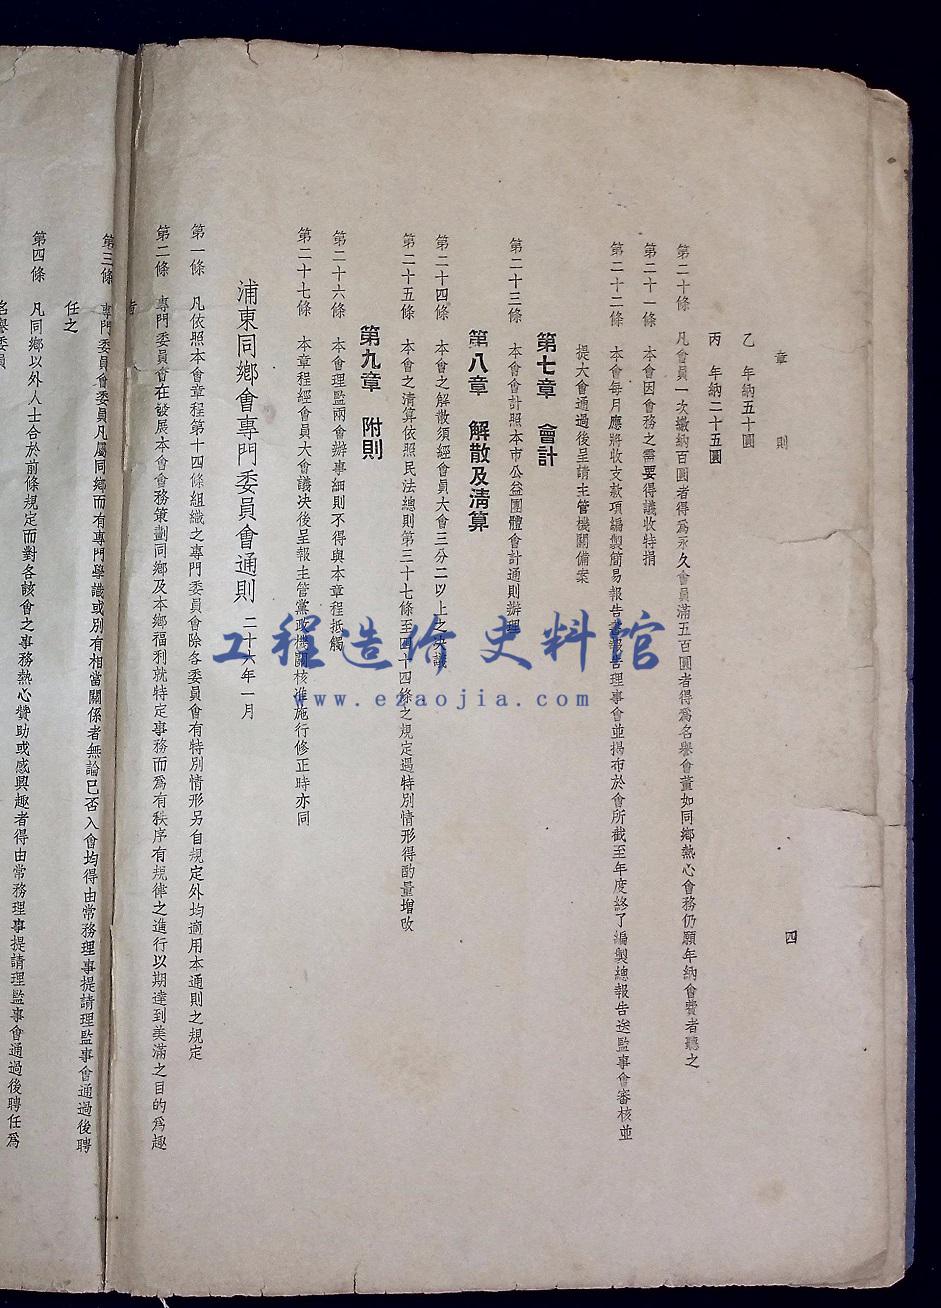 章則
四
乙　年納五十圓
丙　年納二十五圓
第二十條　凡會員一次繳納百圓者得爲永久會員滿五百圓者得爲名譽會董如同鄉熱心會務仍願年納會費者聽之
第二十一條　本會因會務之需要得議收特捐
第二十二條　本會每月應將收支款項編製簡易報告書報告理事會並揭布於會所截至年度終了編製總報告送監事會審核並
提大會通過後呈請主管機關備案
第七章　會計
第二十三條　本會會計照本市公益團體會計通則辦理
第八章　解散及清算
第二十四條　本會之解散須經會員大會三分二以上之決議
第二十五條　本會之清算依照民法總則第三十七條至四十四條之規定遇特別情形得酌量增改
第九章　附則
第二十六條　本會理監兩會辦事細則不得與本章程抵觸
第二十七條　本章程經會員大會議决後呈報主管黨政機關核準施行修正時亦同
浦東同鄉會專門委員會通則　二十六年一月
第一條　凡依照本會章程第十四條組織之專門委員會除各委員會有特別情形另自規定外均適用本通則之規定
第二條　專門委員會在發展本會會務策劃同鄉及本鄉福利就特定事務而爲有秩序有規律之進行以期達到美滿之目的爲趣
旨
第三條　專門委員會委員凡屬同鄉而有專門學識或別有相當關係者無論已否入會均得由常務理事提請理監事會通過後聘
任之
第四條　凡同鄉以外人士合於前條規定而對各該會之事務熱心贊助或感興趣者得由常務理事提請理監事會通過後聘任爲
名譽委員
工程造价史料馆
www.ezaojia.com